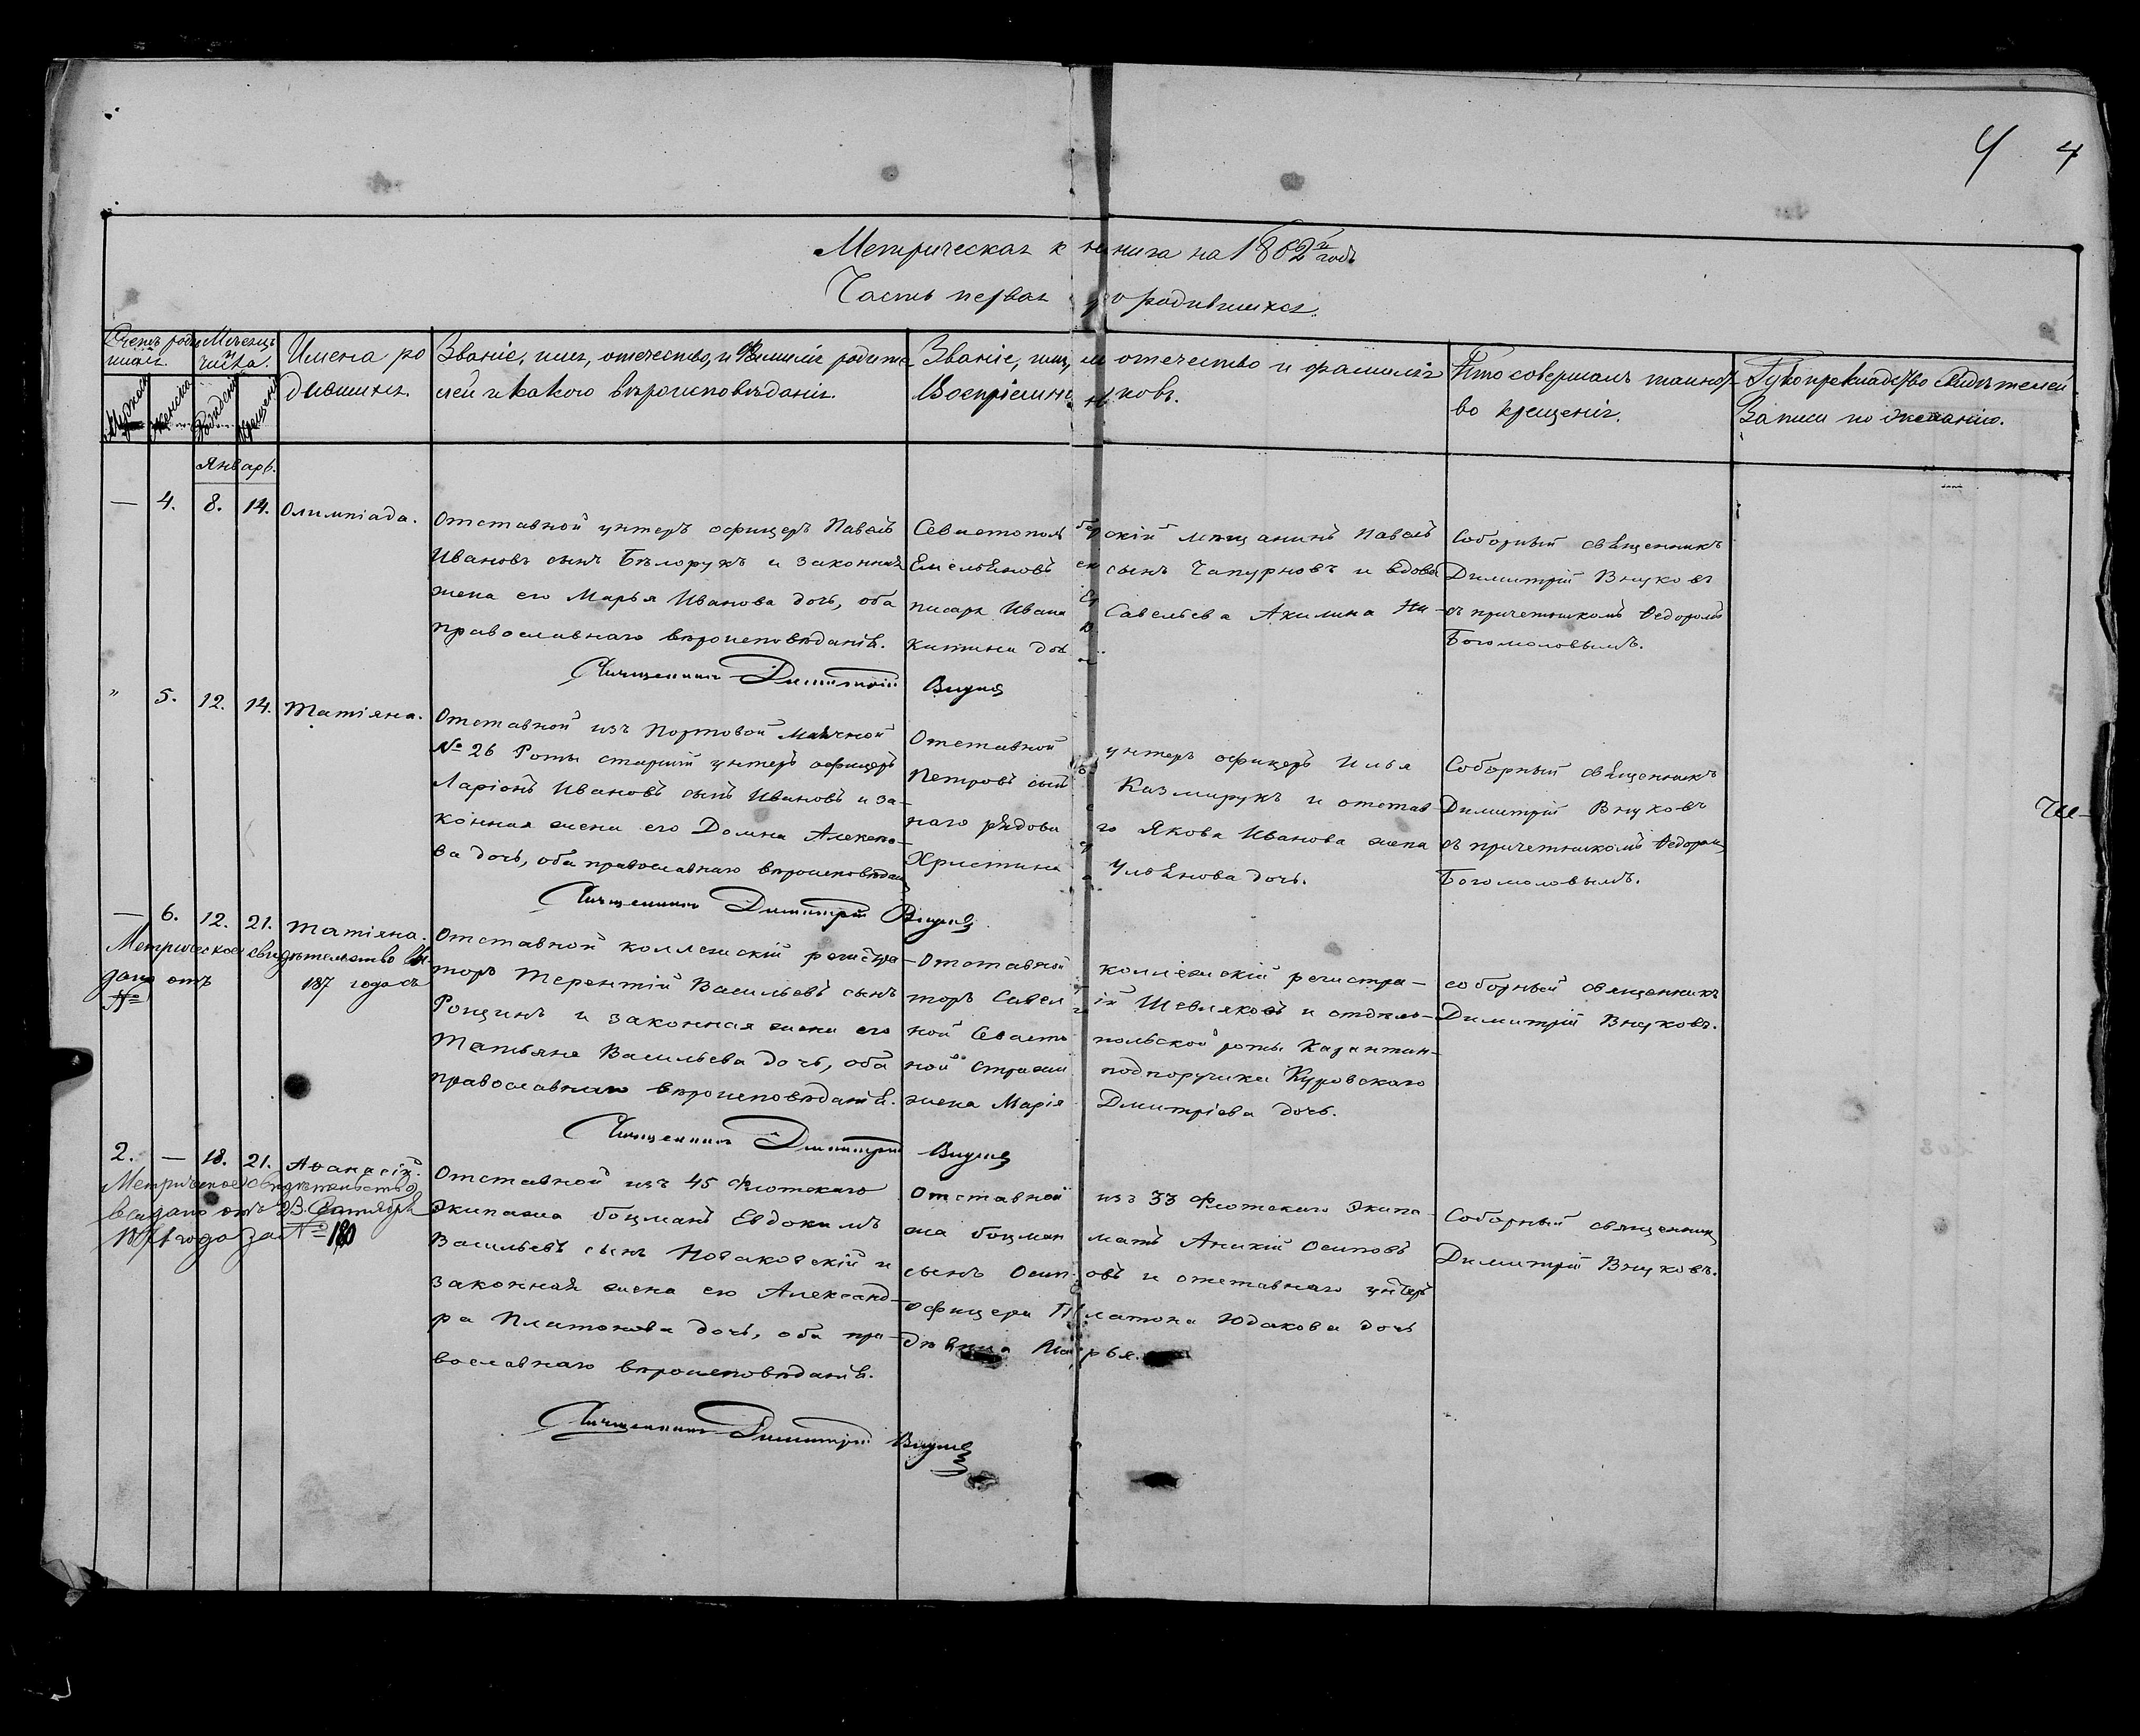 4 4
Метрическая книга на 1862й годъ
Часть первая о родившихся.
Счетъ родившихся.
Мѣсяцъ и числа.
Имена родившихся.
Званіе, имя, отечество, и Фамилія родителей и какого вѣроисповѣданія.
Званіе, имя, отечество и фамилія Воспріемниковъ.
Кто совершалъ таинство крещенія.
Рукоприкладство свидѣтелей Записи по желанію.
Мужеска
женска
Рожденія
Крещенія
Январь.
— 4. 8. 14. Олимпіада.
Отставной унтеръ офицеръ Павелъ
Ивановъ сынъ Бѣлорукъ и законная
жена его Марья Иванова дочь, оба
православнаго вѣроисповѣданія.
Севастопольскій мѣщанинъ Павелъ
Емельяновъ сынъ Чапурновъ и вдова
писаря Ивана Савельева Акилина Ни-
китина доч
Соборный священникъ
Димитрій Внуковъ
съ причетникомъ Ѳедоромъ
Богомоловымъ.
Священникъ Димитрій Внуковъ
" 5. 12. 14. Татіяна.
Отставной изъ Портовой
№ 26 Роты старшій унтеръ офицеръ
Ларіонъ Ивановъ сынъ Ивановъ и за-
конная жена его Домна Алексѣе-
ва дочь, оба православнаго вѣроисповѣдан
Отставной унтеръ офицеръ Илья
Петровъ сынъ Казмирукъ и отстав
наго рядоваго Якова Иванова жена
Христина Ульянова дочь.
Соборный священникъ
Димитрій Внуковъ
съ причетникомъ Ѳедоромъ
Богомоловымъ.
Че-
Священникъ Димитрій Внуковъ
— 6. 12. 21. Татіяна.
Метрическое свидѣтельство вы-
дано отъ 187 года съ
№
Отставной коллежскій регистра-
торъ Терентій Васильевъ сынъ
Рощинъ и законная жена его
Татьяна Васильева дочь, оба
православнаго вѣроисповѣданія.
Отставной коллежскій регистра-
торъ Савелій Шевляковъ и отдѣль-
ной Севастопольской роты Карантин-
ной стражи подпоручика Куровскаго
жена Марія Дмитріева дочь.
соборный священникъ
Димитрій Внуковъ.
Священникъ Димитрій Внуковъ
2. — 18. 21. Аѳанасій.
Метрическое свидѣтельство
выдано отъ 23. Сентября
года за № 180
Отставной изъ 45 Флотскаго
экипажа боцманъ Евдокимъ
Васильевъ сынъ Новаковскій и
законная жена его Александ-
ра Платонова дочь, оба пра-
вославнаго вѣроисповѣданія.
Отставной изъ 33 Флотскаго экипа-
жа боцманматъ Аникій Осиповъ
сынъ Осиповъ и отставнаго унтеръ
офицера Платона Юдакова дочь
дѣвица Марья.
Соборный священникъ
Димитрій Внуковъ.
Священникъ Димитрій Внуковъ